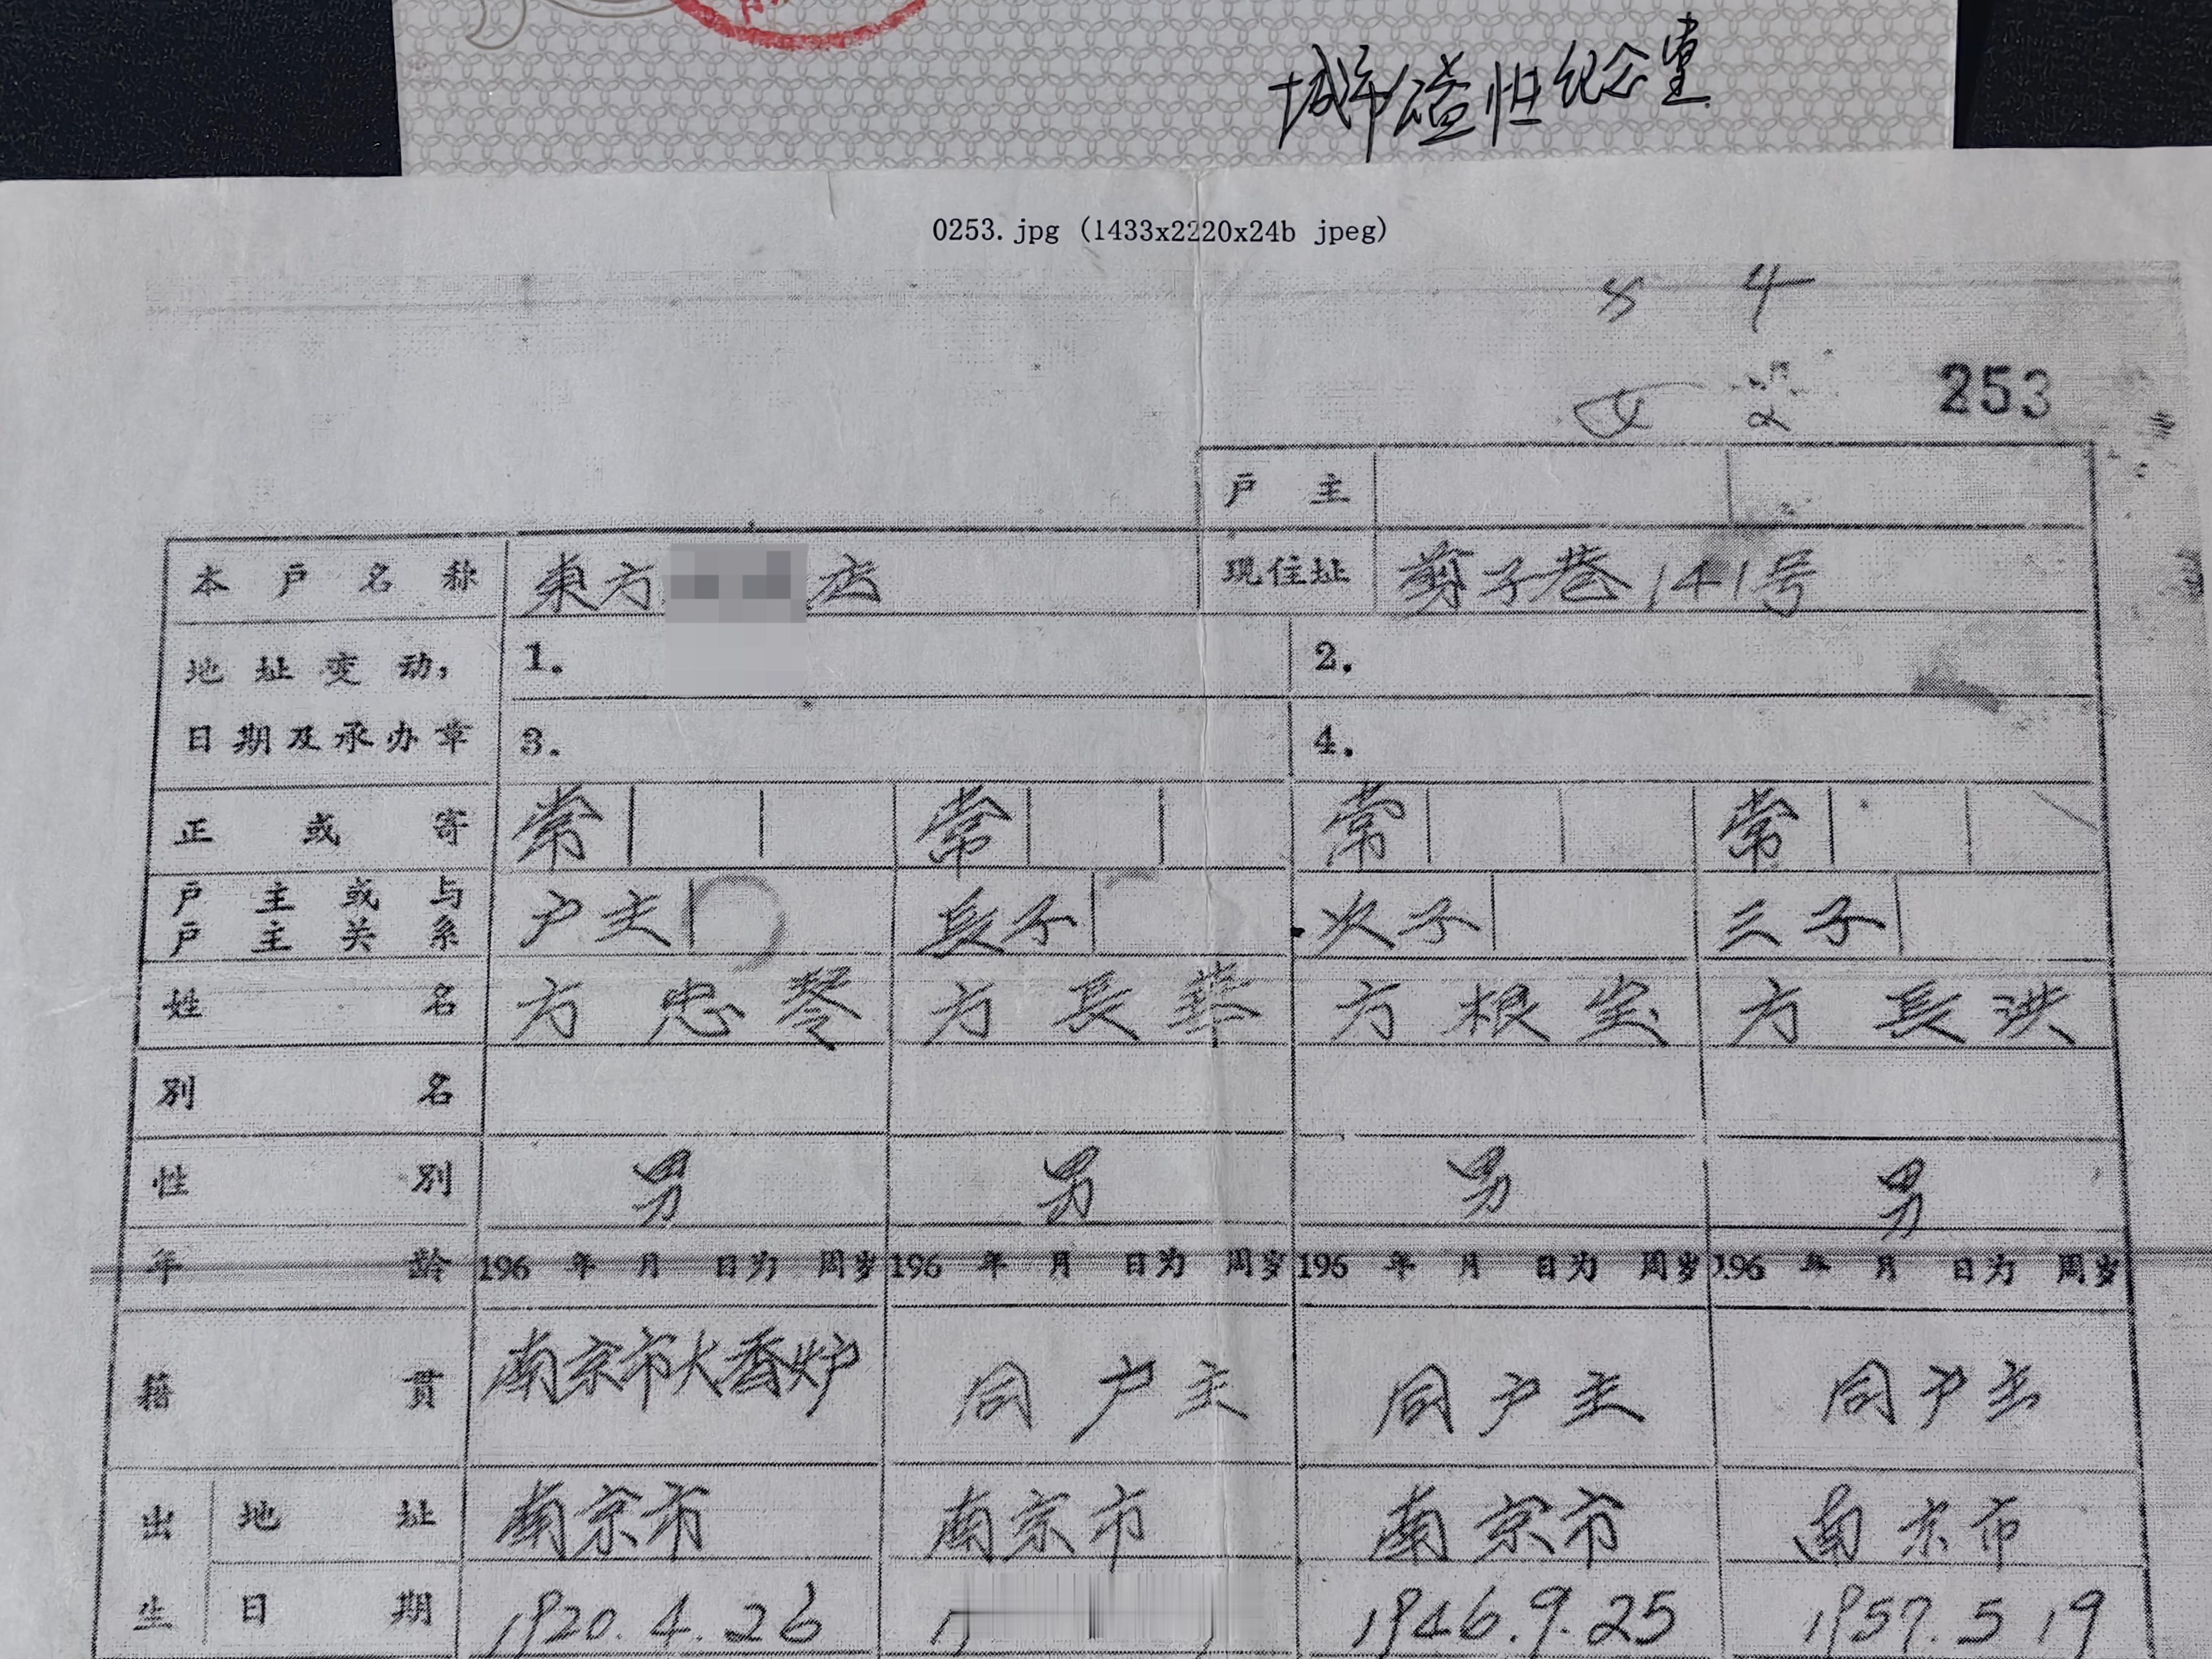 纪念堂
0253.jpg (1433x2220x24b jpeg)
4
253
户主
本户名称 東方 店 现住址 剪子巷141号
地址变动, 1. 2.
日期及承办章 3. 4.
正或寄 常 常 常 常
户主或与户主关系 户主 長子 次子 三子
姓名 方忠琴 方長華 方根宝 方長洪
别名
性别 男 男 男 男
年龄 196 年 月 日为 周岁 196 年 月 日为 周岁 196 年 月 日为 周岁 196 年 月 日为 周岁
籍贯 南京市大香炉 同户主 同户主 同户主
出生 地址 南京市 南京市 南京市 南京市
日期 1920.4.26 1946.9.25 1957.5 19